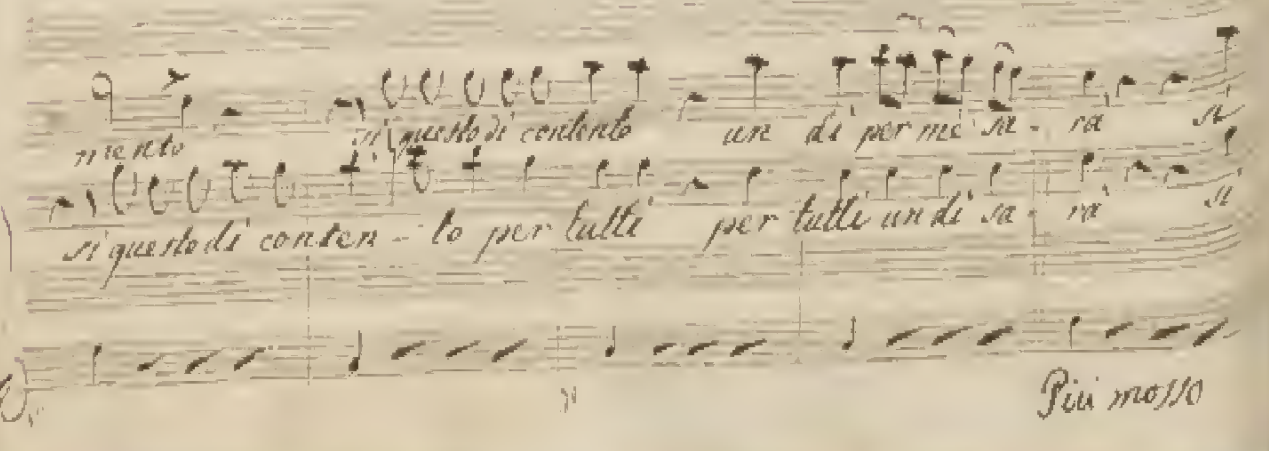 mento si questo di contento un di per me sa - rà si
si questo di conten - to per tutti per tutti un di sa - rà si
Più mosso